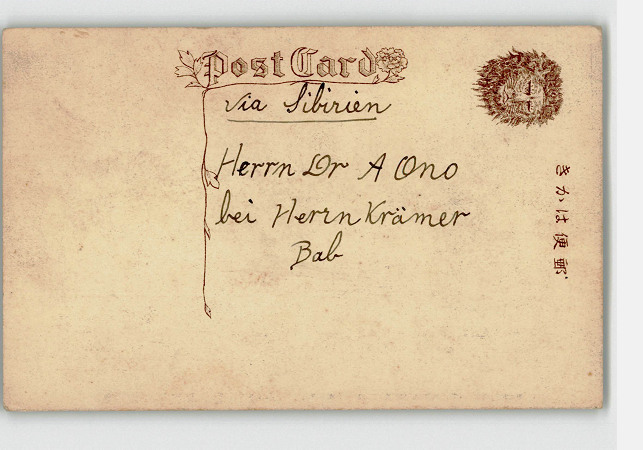 Post Card
via Sibirien
Herrn Dr A Ono
bei Herrn Krämer
Bab
郵便はかき